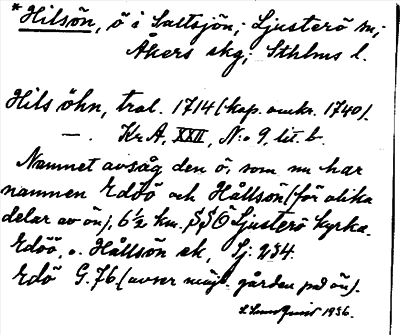 *Hilsön, ö i Saltsjön; Ljusterö sn;
Åkers skg; Sthlms l.
Hils öhn, tral. 1714 (kop. omkr. 1740).
— . Kr A, XXII, N:o 9 lit. b.
Namnet avsåg den ö, som nu har
namnen Edöö och Hållsön (för olika
delar av ön), 6 1/2 km. SSÖ Ljusterö kyrka.
Edöö, o. Hållsön ek, Sj. 234.
Edö G. 76 (avser möjl. gården på ön).
1936.